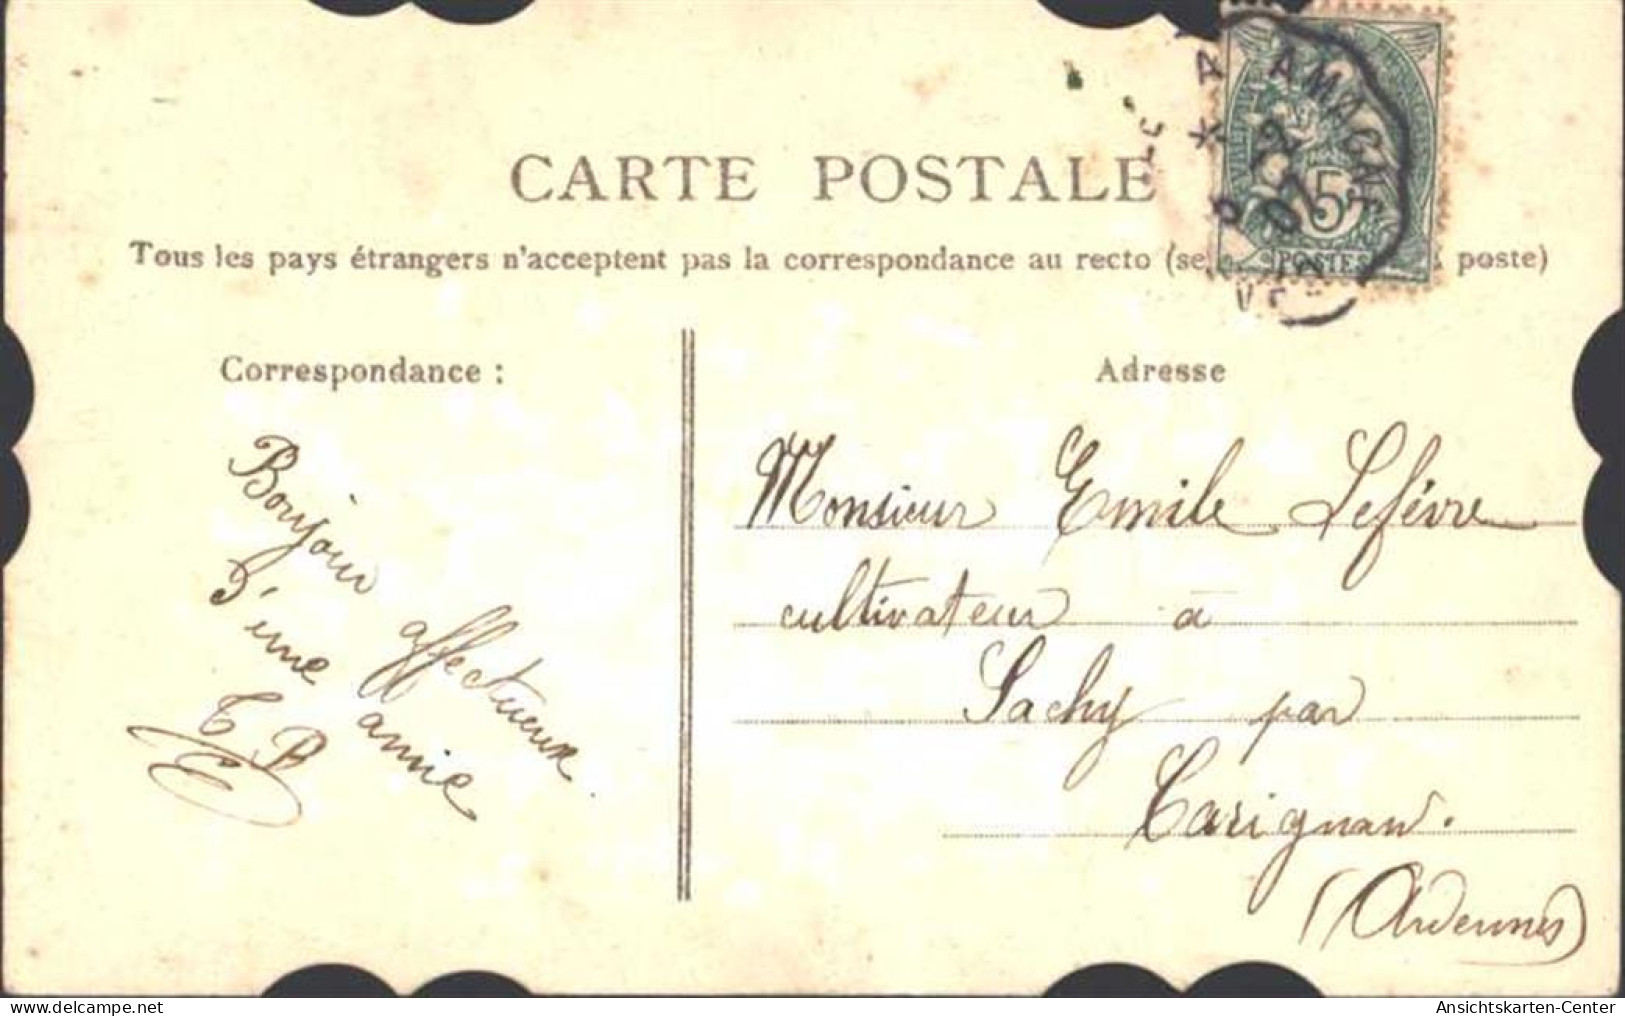 CARTE POSTALE
Tous les pays étrangers n'acceptent pas la correspondance au recto (se poste)
A AMAGNE
22
07
5
POSTES
Correspondance :
Bonjour affectueux
d'une amie
C. P.
Adresse
Monsieur Emile Lefèvre
cultivateur à
Sachy par
Carignan.
(Ardennes)
delcampe.net
Ansichtskarten-Center